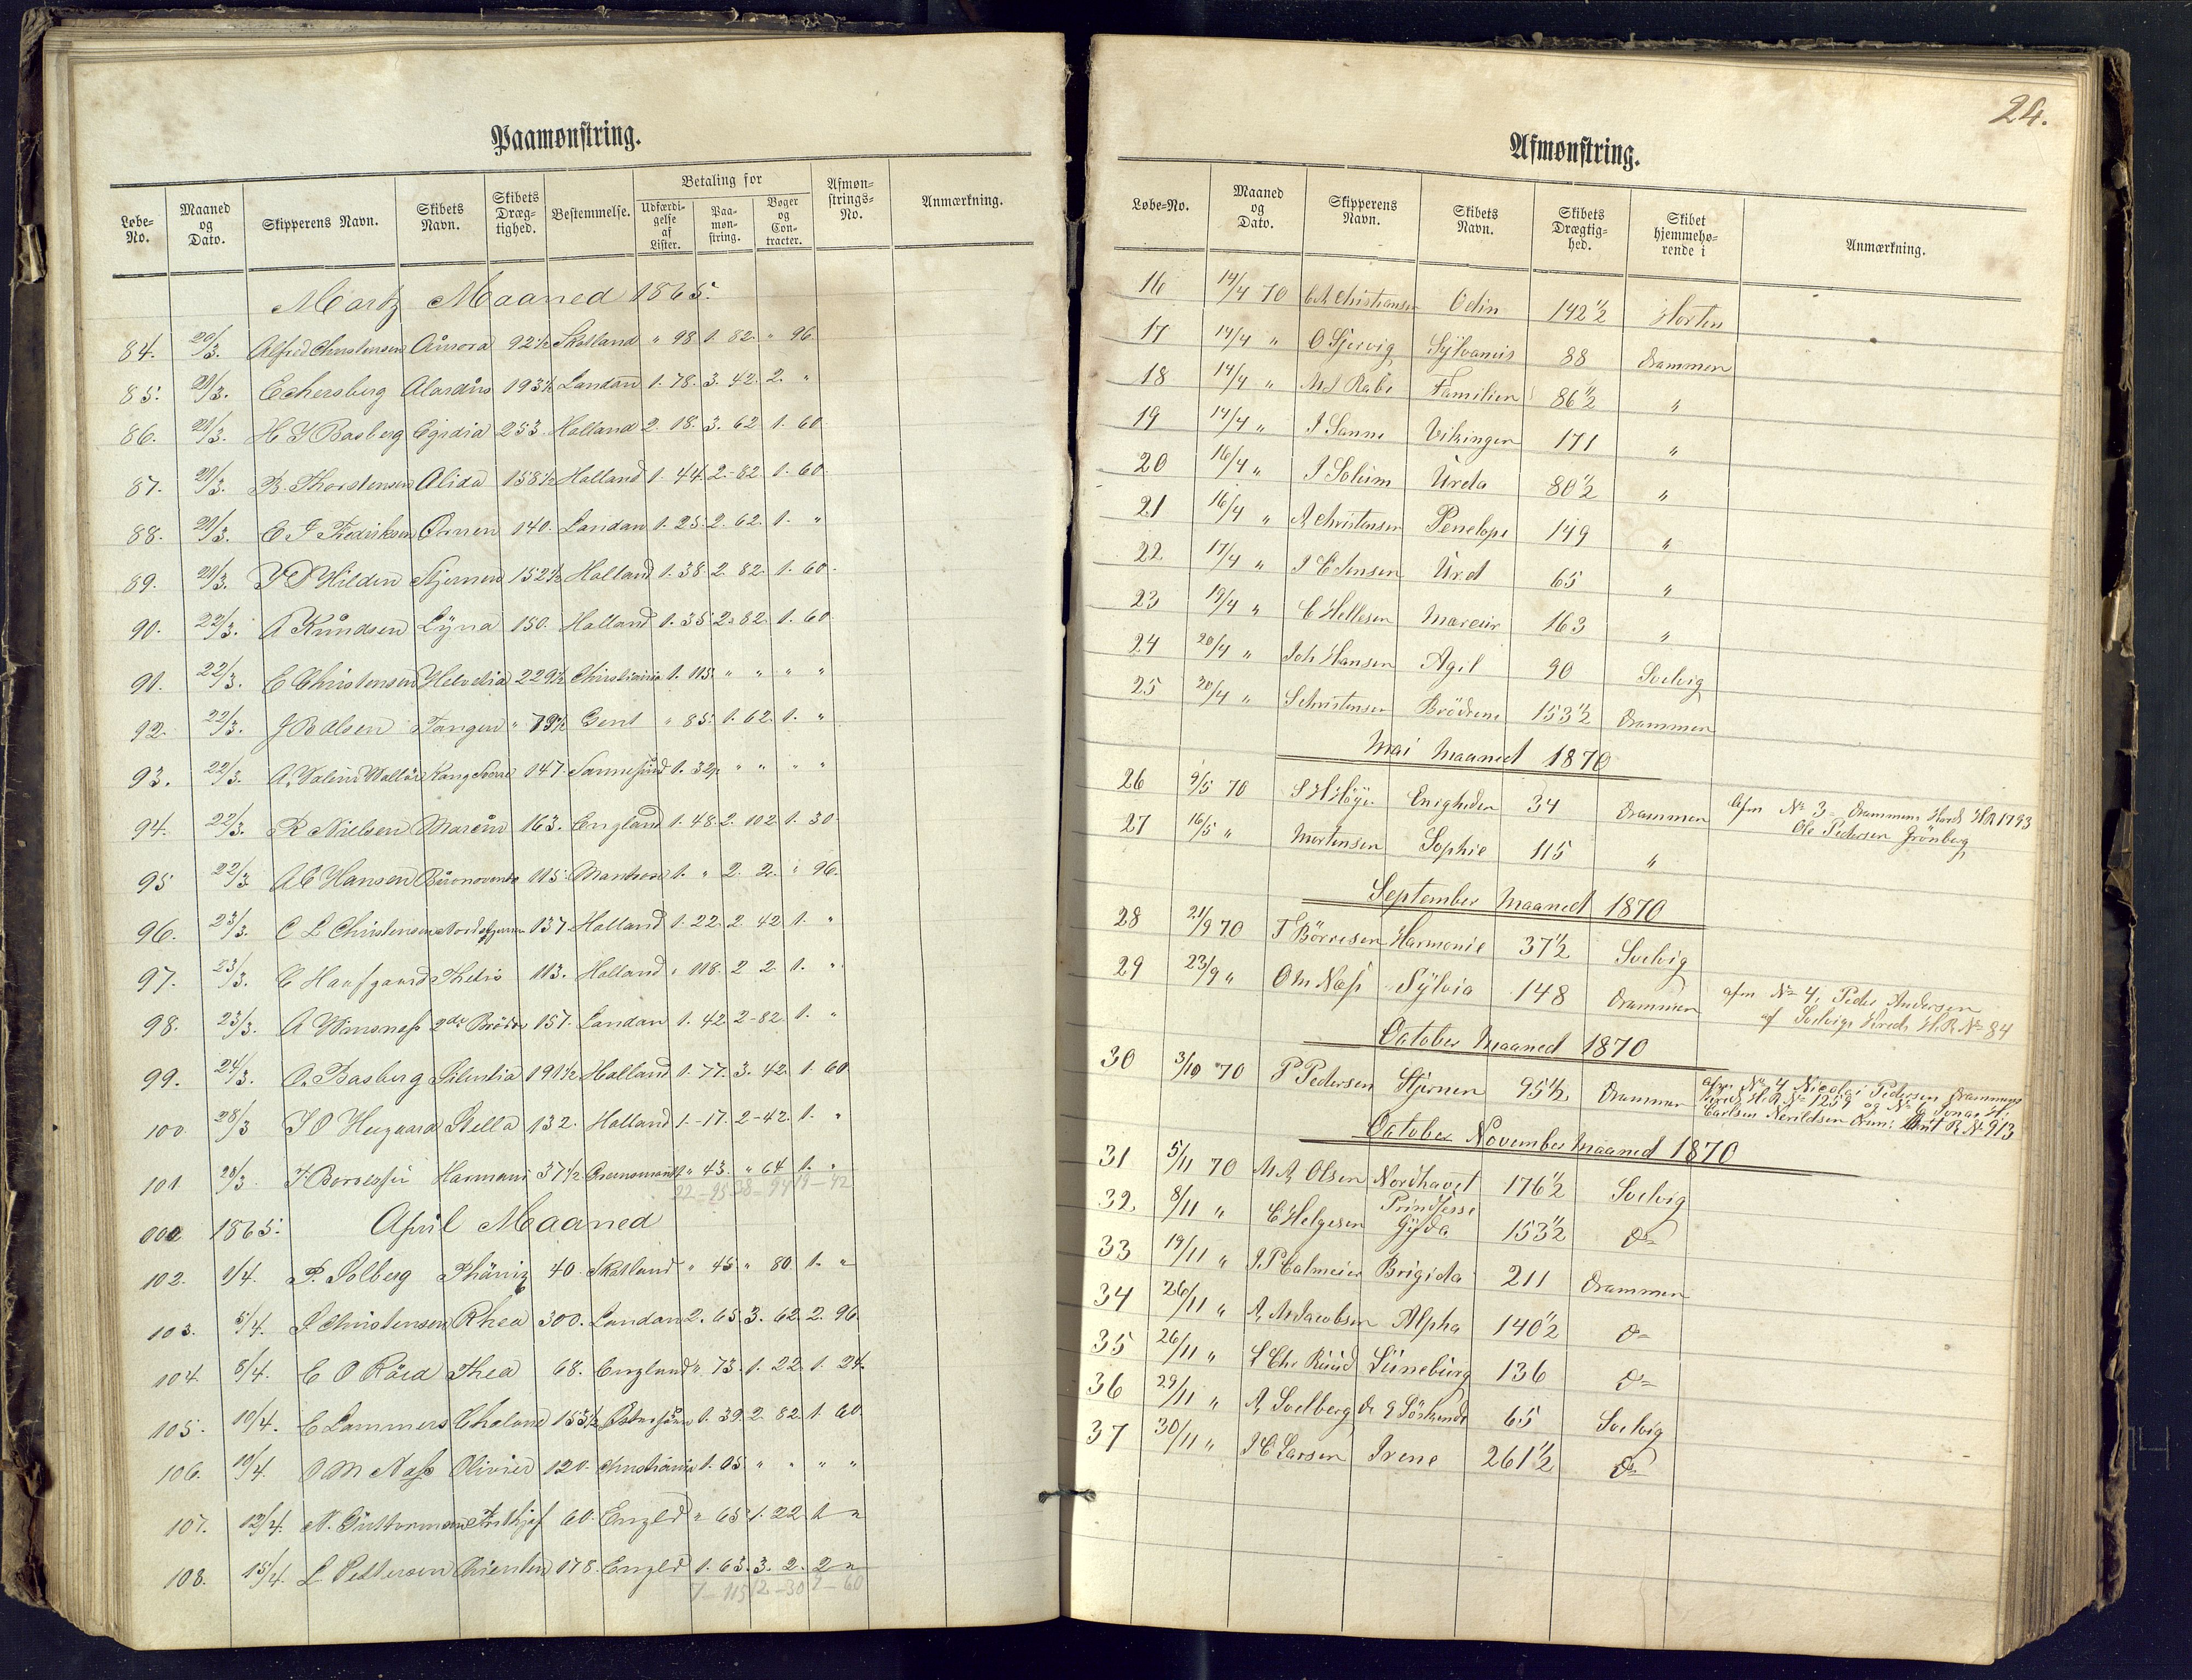 Paamønstring.
Løbe-No. | Maaned og Dato. | Skipperens Navn. | Skibets Navn. | Skibets Dræg-tighed. | Bestemmelse. | Betaling for | Udfærdi-gelse af Lister. | Paa-møn-string. | Bøger og Con-tracter. | Afmøn-strings-No. | Anmærkning.
Martz Maaned 1865.
84. 20/3. Alfred Christensen Aurora 92½ Skotland " 98 1. 82. " 96.
85. 21/3. Eckersberg Alardus 193½ Landan 1. 78. 3. 42. 2. "
86. 21/3. H Basberg Egidia 253. Holland 2. 18. 3. 62 1. 60
87. 21/3. B. Thorstensen Alida 158½ Holland 1. 44. 2. 82. 1. 60.
88. 21/3. Fredriksen Ørnen 140. Landan 1. 25. 2. 62. 1. "
89. 21/3. Hilden Stjernen 152½ Holland 1. 38. 2. 82. 1. 60.
90. 22/3. A Knudsen Lyna 150. Holland 1. 35 2. 82. 1. 60
91. 22/3. C Christensen Helvetia 229½ Christiania 1. 115 " " " "
92. 22/3. J B Olsen Tangen " 79½ Gent " 85. 1. 62. 1. "
93. 22/3. A. Kong Sverre 147. Sannesund 1. 32. " " " "
94. 22/3. R Nielsen Marcur 163. England 1. 48. 2. 102. 1. 30.
95 22/3 A C Hansen 115. 1. " 2. 2. " 96.
96. 23/3. C L Christensen Nordstjernen 137. Holland 1. 22. 2. 42 1. "
97. 23/3. C Haafgaard Thetis 113. Holland " 118. 2 2. 1. "
98. 23/3. A Wirsnæss 2de Brødre 157. Landan 1. 42. 2-82. 1. "
99. 24/3. O. Basberg Silentia 191½ Holland 1. 77. 3. 42. 1. 60
100 28/3 Stella 132. Holland 1.-17. 2-42. 1. "
101 28/3 Harmoni 37½ " 43. " 64 1. "
22-95 38-94 19-42
1865. April Maaned
102. 1/4. P. Solberg Phønix 40. Skotland " 45 " 80 1. "
103. 5/4. S Christensen Rhea 300. Landan 2. 65 3. 62. 2. 96.
104. 8/4. C O Röed Thea 68. England " 73. 1. 22. 1. 24.
105. 10/4. C Lammers 153½ 1. 39. 2. 82. 1. 60.
106. 10/4. O M Næss Olivier 120. Christiania 1. 05 " " " "
107. 12/4. N. Guttormsen Frithjof 60. Engld " 65 1. 22 1. "
108. 15/4. L Pettersen Orienten 178. Engld 1. 63. 3. 2. 2 "
7-115 12-30 9-60
24.
Afmønstring.
Løbe-No. | Maaned og Dato. | Skipperens Navn. | Skibets Navn. | Skibets Drægtig-hed. | Skibet hjemmehø-rende i | Anmærkning.
16 14/4 70 Christiansen Odin 142½ Horten
17 14/4 " O Sjervig Sylvanus 88 Drammen
18 14/4 " Rabe Familien 86½ "
19 14/4 " J Sanne Vikingen 171 "
20 16/4 " J Solum Urda 80½ "
21 16/4 " A Christensen Penelope 149 "
22 17/4 " J C Jensen Urd 65 "
23 19/4 " C Hellesen Marcur 163 "
24 20/4 " Joh Hansen Agil 90 Svelvig
25 20/4 " S Christensen Brödrene 153½ Drammen
Mai Maaned 1870
26 9/5 70 S H Höyer Enigheden 34 Drammen Afm No 3 Drammens Kreds HR 1793
Ole Pedersen Grönberg
27 16/5 " Mortensen Sophie 115 "
September Maaned 1870
28 21/9 70 T Börresen Harmonie 37½ Svelvig
29 23/9 " O M Næss Sylvia 148 Drammen afm No 4, Peder Andersen
af Svelvigs Kreds H.R. No 84
October Maaned 1870
30 3/10 70 P Pedersen Stjernen 95½ Drammen afm No 4 Nicolai Pedersen Drammens
Kreds H.R. No 1259 og No 6 Jonas H.
Carlsen Neroldsen Dram: R No 913
October November Maaned 1870
31 5/11 70 M A Olsen Nordhavet 176½ Svelvig
32. 8/11 " C Helgesen Prindsesse Gyda 153½ do
33 19/11 " J P Calmeier Brigida 211 Drammen
34 26/11 " A. M Jacobsen Alpha 140½ do
35 26/11 " S Chr Ruud Lüneburg 136 do
36 29/11 " A, Soelberg de 9 Söskende 65 Svelvig
37 30/11 " J C Larsen Irene 261½ do